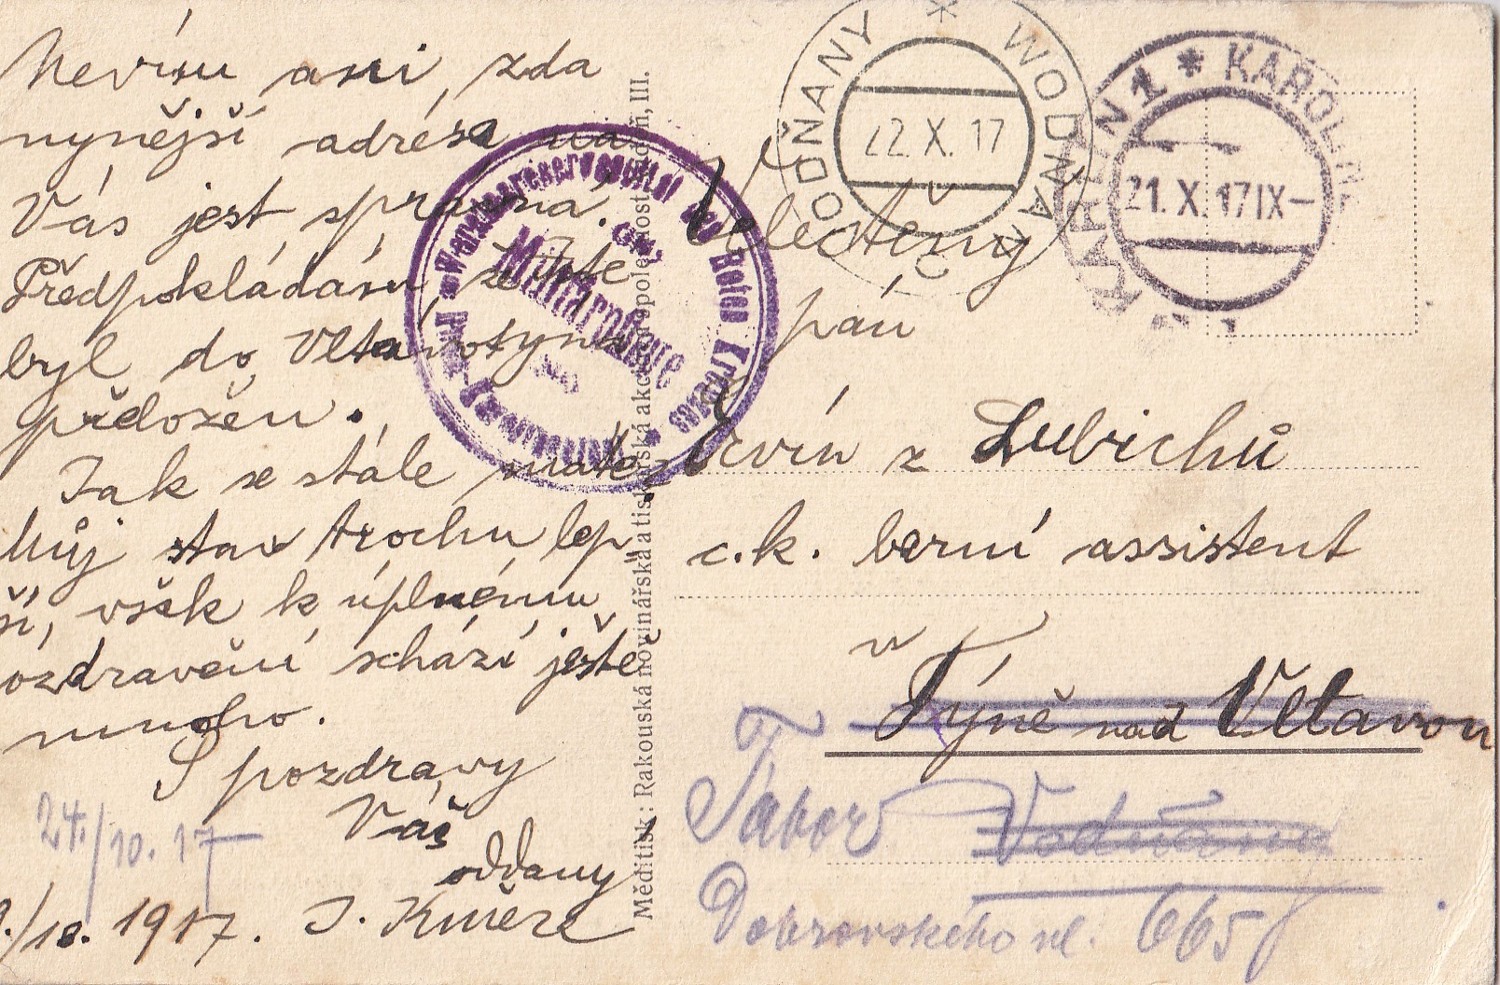 Nevím ani, zda
nynější adresa na
Vás jest správná.
Předpokládám, že jste
byl do Vltavotýna
přeložen.
Jak se stále máte?
Můj stav trochu lep
ší, však k úplnému
ozdravění schází ještě
mnoho.
S pozdravy
Váš
oddaný
24./10. 17
/10. 1917.
Měditisk: Rakouská novinářská a tiskařská akc. společnost, III.
Rotes Kreuzes
Militärpflege
VODŇANY * WODNAN
22. X. 17
KARLIN 1 * KAROLIN
21. X. 17 IX–
Velectěný
pán
Ervín z Lubichů
c. k. berní assistent
v
Týně nad Vltavou
Tábor Vodňany
Dobrovského ul. 665